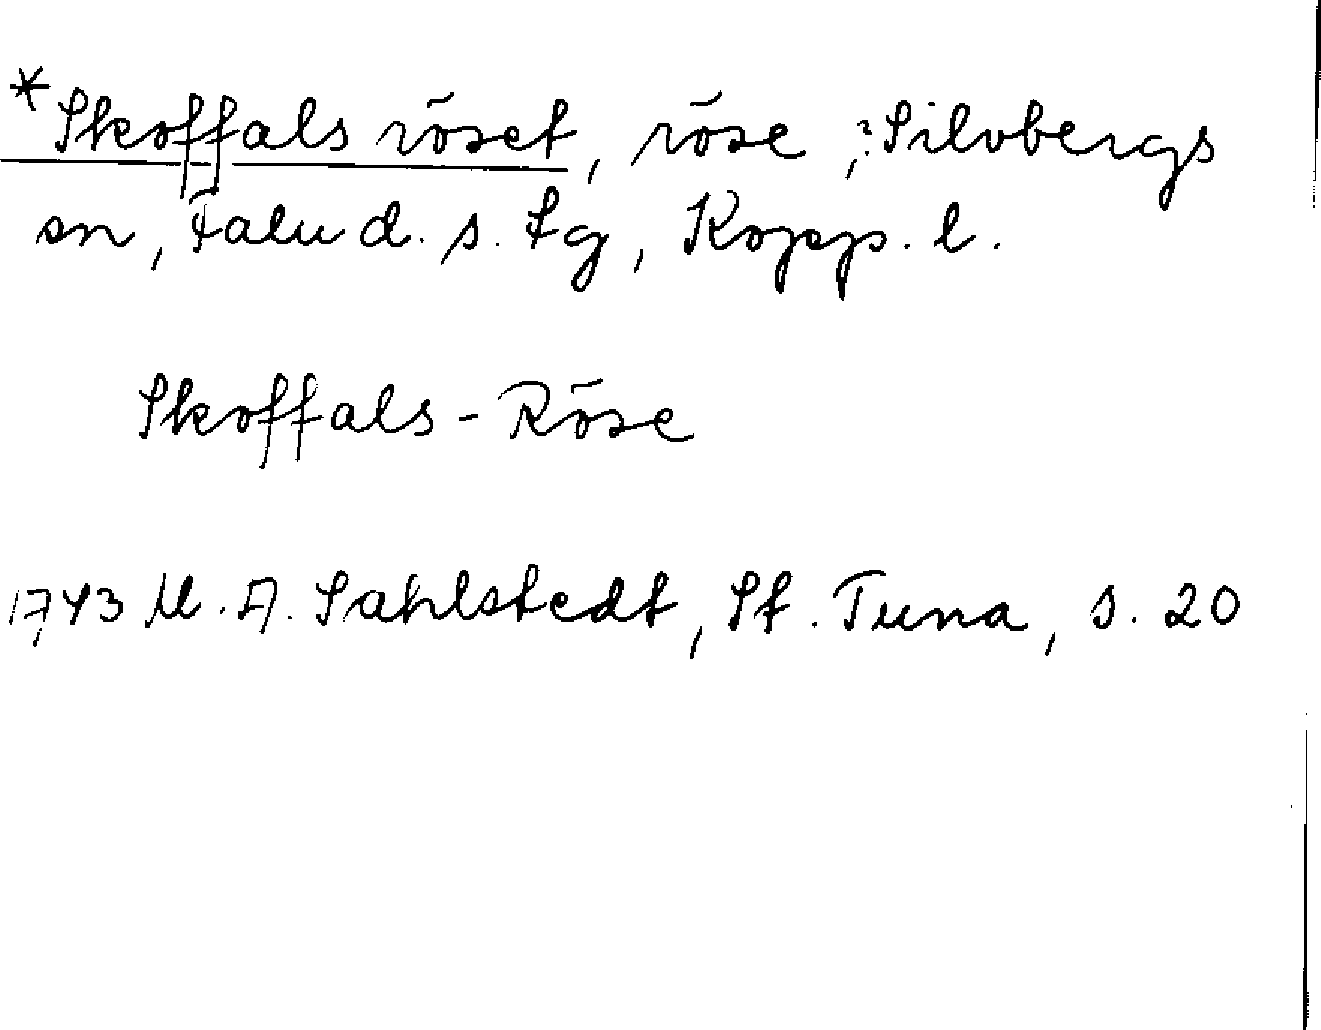 *Skoffals röset, röse, ?Silvbergs
sn, Falu d. s. tg, Kopp. l.
Skoffals-Röse
1743 M. A. Sahlstedt, St. Tuna, s. 20